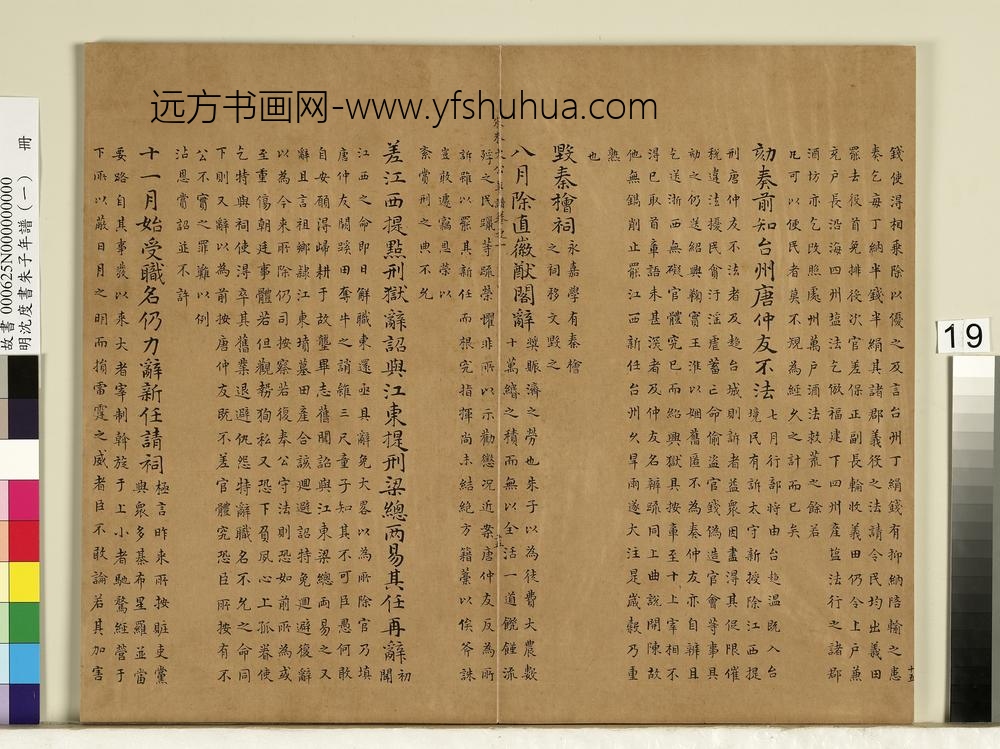 远方书画网-www.yfshuhua.com
錢使得相乗除以優之及言台州丁絹錢有抑納陪輸之患
奏乞每丁納半錢半絹其諸郡義役之法請令民均出義田
罷去役首免排役次官差保正副長輪收義田仍令上戶兼
充戶長沿海四州鹽法乞倣福建下四州產鹽法行之諸郡
酒坊亦乞改照處州萬戶酒法救荒之餘若
凡可以便民者莫不規為經久之計而已矣
劾奏前知台州唐仲友不法
七月行部時由台趍溫既入台
境民有訴太守新授除江西提
刑唐仲友不法者及趍台城則訴者益衆因盡得其促限催
稅違法擾民貪汙淫虐蓄亡命偷盜官錢偽造官會等事具
劾之仍送紹興鞫實王淮以姻舊匿不為奏仲友亦自辨且
乞送浙西無礙官體究已而紹興獄具按章至十上宰相不
得已取首章語未甚深者及仲友名辨疏同上曲說開陳故
他無鐫削止罷江西新任台州久旱雨遂大注是歲穀乃重
熟
也
毀秦檜祠
永嘉學有秦檜
之祠移文毀之
八月除直徽猷閣辭
奬賑濟之勞也朱子以為徒費大農數
十萬緡之積而無以全活一道饑饉流
殍之民曠等疏榮懼非所以示勸懲况近奏唐仲友反為所
訴雖以罷其新任而根究指揮尚未結絶方籍藁以俟斧誅
豈敢遽竊恩榮以
紊賞刑之典不允
差江西提點刑獄辭詔與江東提刑梁總两易其任再辭
初
聞
江西之命即日解職東還亟具辭免大畧以為所除官乃填
唐仲友闕蹊田奪牛之誚雖三尺童子知其不可臣愚何敢
自安願得歸耕于故壟畢志舊聞詔與江東梁總两易之又
辭且言祖鄉隷江東墳墓田產合該廻避詔特免廻避復辭
以為今來所除仍司按察若復奉公守法則恐如前所為或
至重傷朝廷事體若但觀勢狥私又恐下負夙心上孤眷使
乞特與祠使得卒其舊業退避仇怨特辭職名不允之命同
下則又辭以為前按唐仲友既不差官體究恐臣所按有不
公不實之罪難以例
沾恩賞詔並不許
十一月始受職名仍力辭新任請祠
極言昨來所按贓吏黨
與衆多棊布星羅並當
要路自其事發以來大者宰制斡旋于上小者馳騖經營于
下所以蔽日月之明而損雷霆之威者臣不敢論若其加害
十五
故書 000625N000000000
明沈度書朱子年譜(一) 冊
19